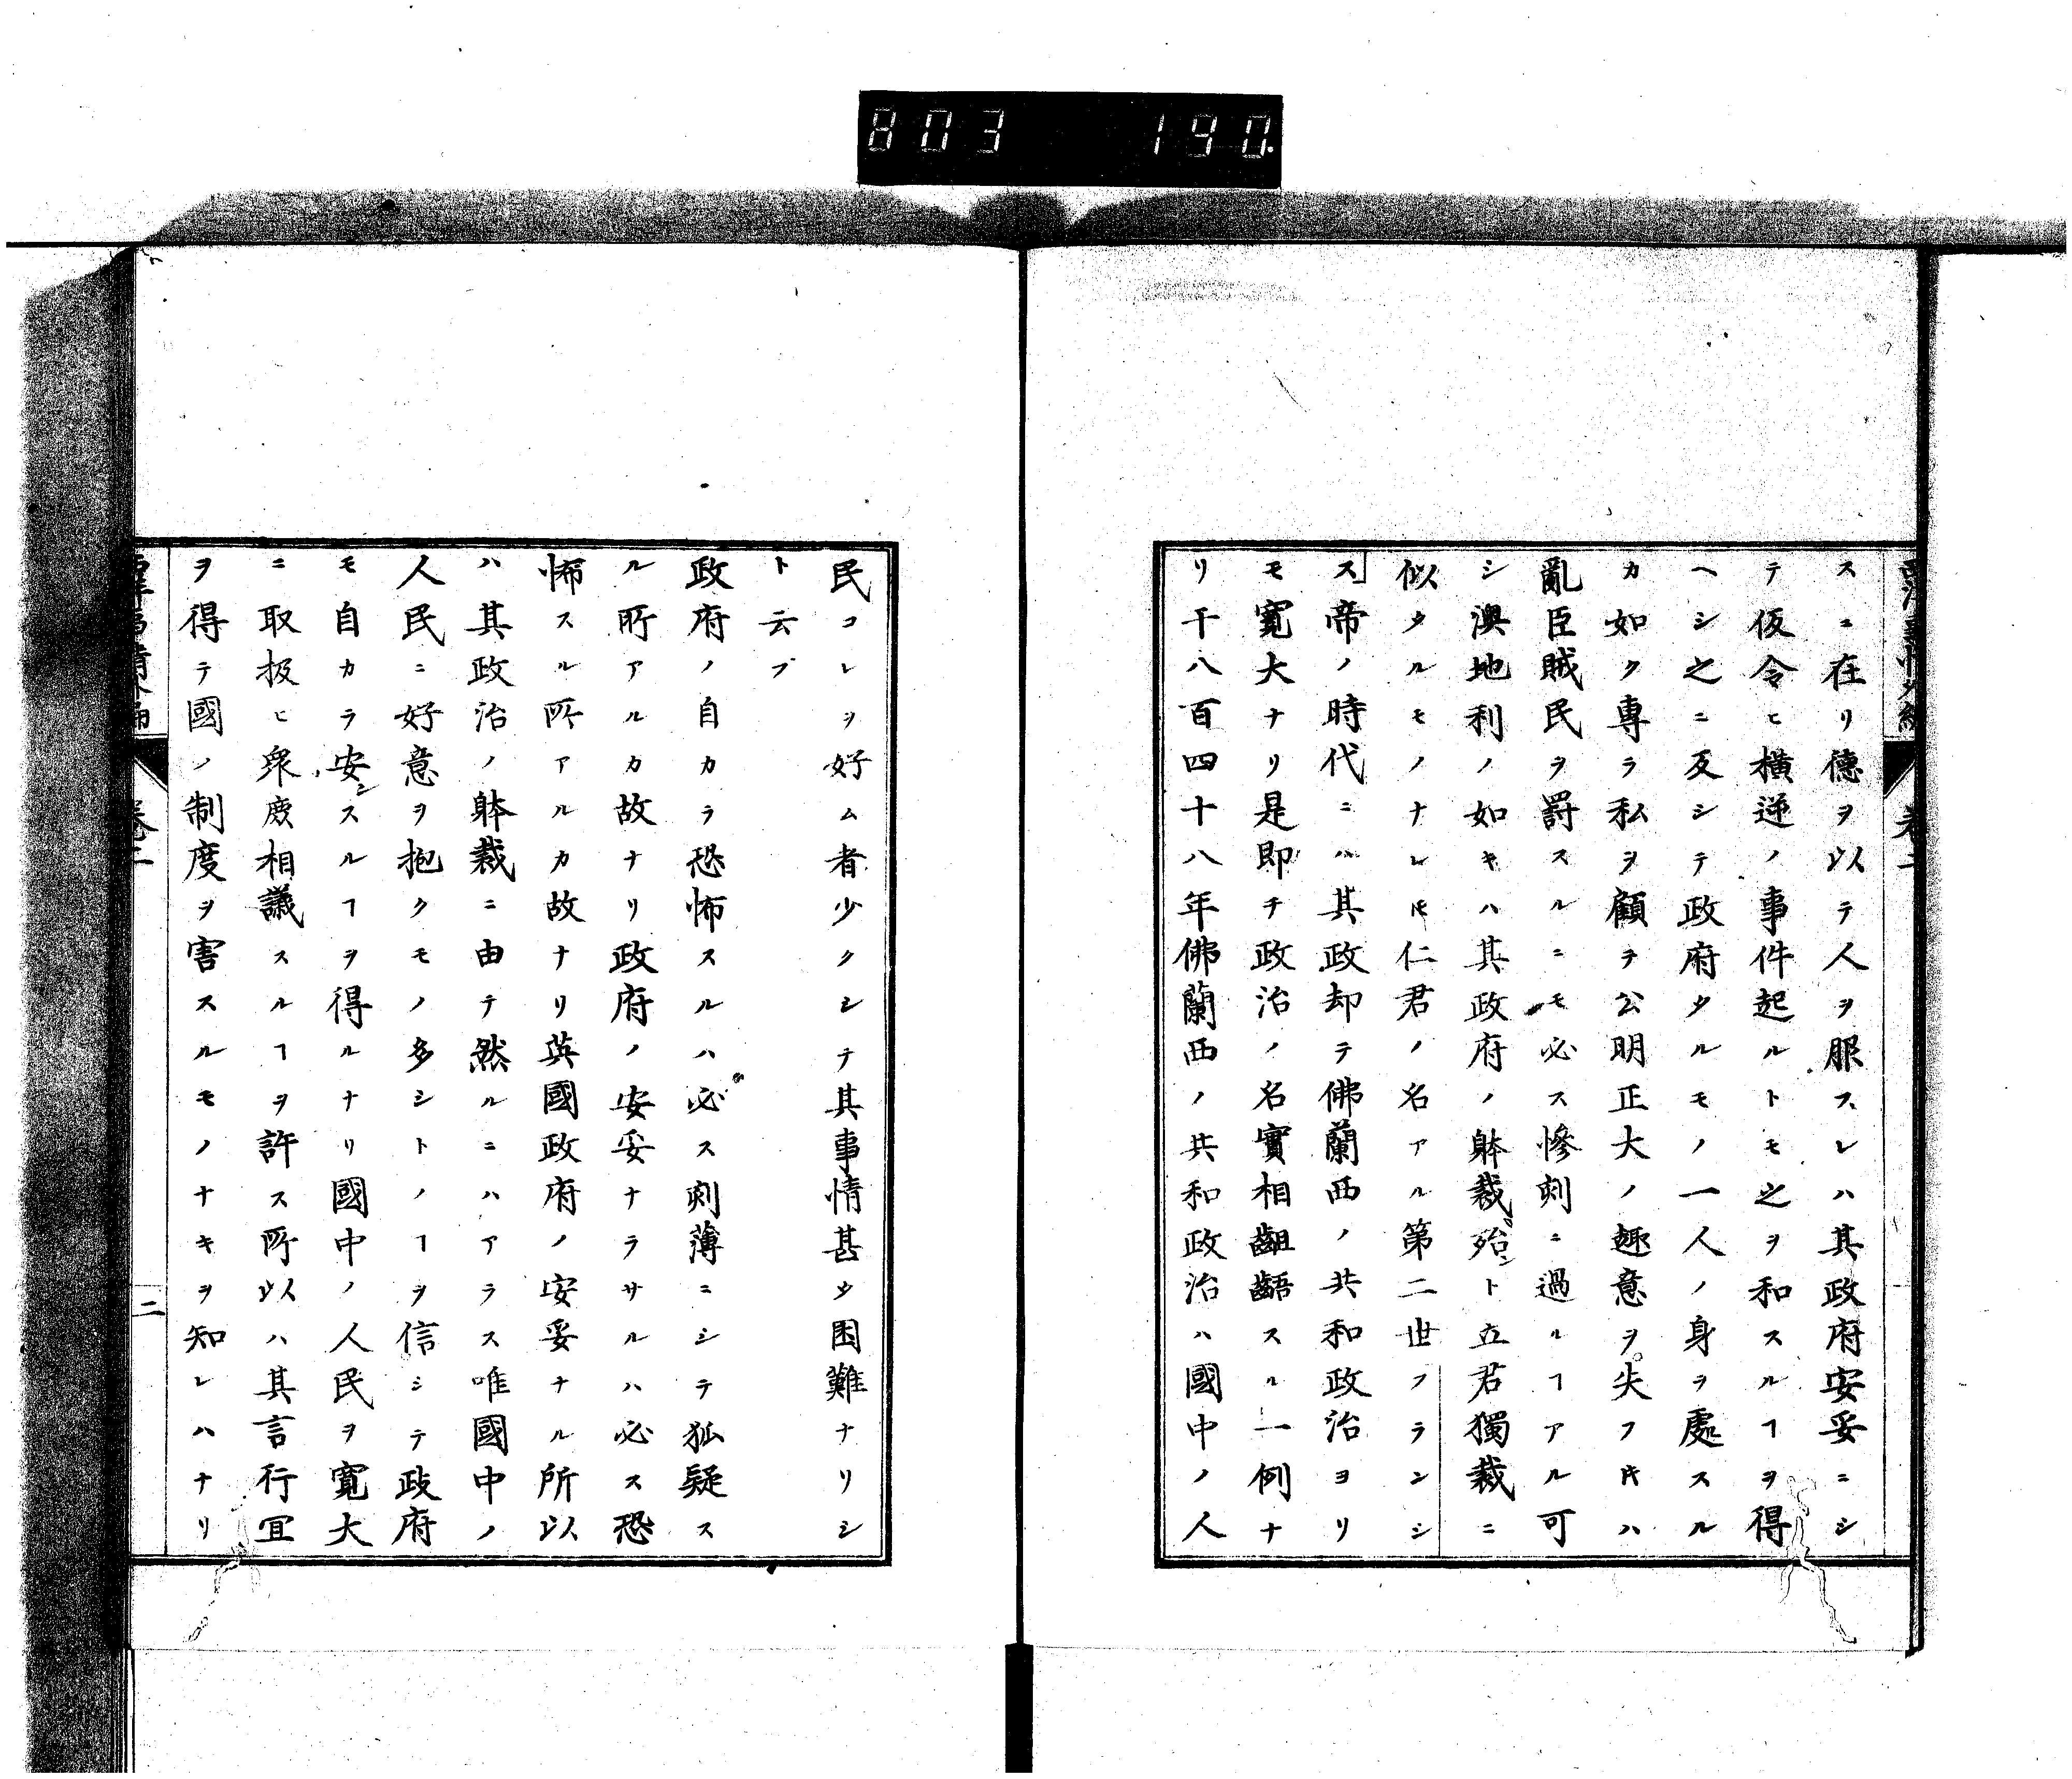 803 190
西洋事情外編 卷二
スニ在リ德ヲ以テ人ヲ服スレハ其政府安妥ニシ
テ仮令ヒ横逆ノ事件起ルトモ之ヲ和スルヿヲ得
ヘシ之ニ反シテ政府タルモノ一人ノ身ヲ處スル
カ如ク專ラ私ヲ顧テ公明正大ノ趣意ヲ失フ片ハ
亂臣賊民ヲ罸スルニモ必ス慘刻ニ過ルヿアル可
シ澳地利ノ如キハ其政府ノ躰裁殆ント立君獨裁ニ
似タルモノナレ𪜈仁君ノ名アル第二世フランシ
ス帝ノ時代ニハ其政却テ佛蘭西ノ共和政治ヨリ
モ寛大ナリ是即チ政治ノ名實相齟齬スル一例ナ
リ千八百四十八年佛蘭西ノ共和政治ハ國中ノ人
民コレヲ好ム者少クシテ其事情甚タ困難ナリシ
ト云フ
政府ノ自カラ恐怖スルハ必ス刻薄ニシテ狐疑ス
ル所アルカ故ナリ政府ノ安妥ナラサルハ必ス恐
怖スル所アルカ故ナリ英國政府ノ安妥ナル所以
ハ其政治ノ躰裁ニ由テ然ルニハアラス唯國中ノ
人民ニ好意ヲ抱クモノ多シトノヿヲ信シテ政府
モ自カラ安ンスルヿヲ得ルナリ國中ノ人民ヲ寛大
ニ取扱ヒ衆庶相議スルヿヲ許ス所以ハ其言行冝
ヲ得テ國ノ制度ヲ害スルモノナキヲ知レハナリ
西洋事情外編 卷二 二